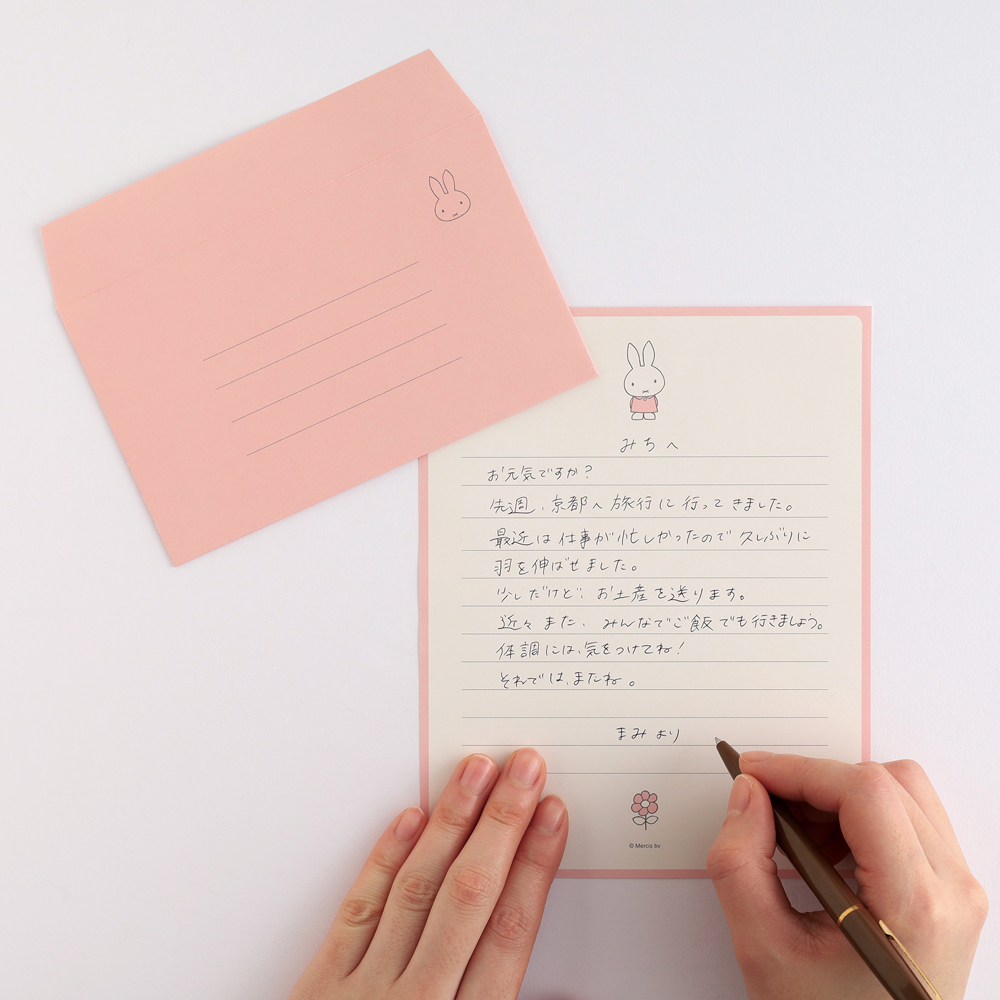 みちへ
お元気ですか?
先週、京都へ旅行に行ってきました。
最近は仕事が忙しかったので久しぶりに
羽を伸ばせました。
少しだけど、お土産を送ります。
近々また、みんなでご飯でも行きましょう。
体調には、気をつけてね!
それでは、またね。
まみより
© Mercis bv